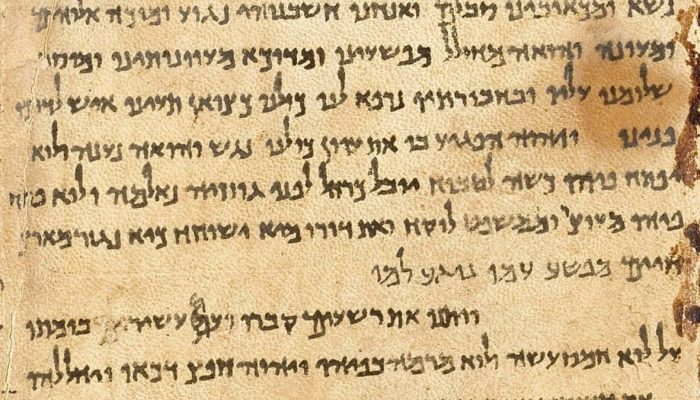 נשא ומכאובינו סבלם ואנחנו חשבנוהי נגוע ומוכה אלוהים
ומעונה והואה מחולל מפשעינו ומדוכא מעוונותינו ומוסר
שלומנו עליו ובחבורתיו נרפא לנו כולנו כצואן תעינו איש לדרכו
פנינו ויהוה הפגיע בו את עוון כולנו נגש והואה נענה ולוא
יפתח פיהו כשה לטבוח יובל כרחל לפני גוזזיה נאלמה ולוא פתח
פיהו מעוצר וממשפט לוקח ואת דורו מיא ישוחח כיא נגזר מארץ
חיים מפשע עמו נוגע למו
ויתנו את רשעים קברו ועם עשירים בומתו
על לוא חמס עשה ולוא מרמה בפיהו ויהוה חפץ דכאו ויחללהו